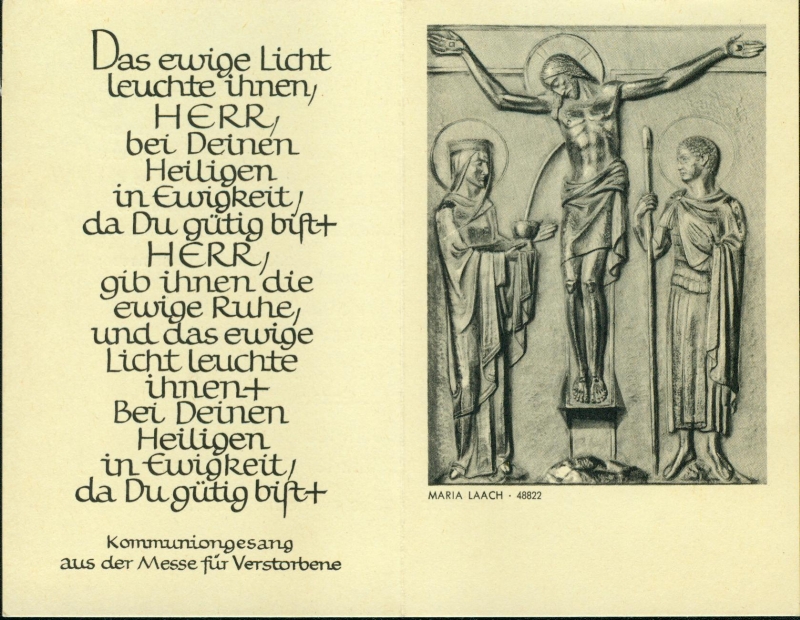 Das ewige Licht
leuchte ihnen,
HERR,
bei Deinen
Heiligen
in Ewigkeit,
da Du gütig bist+
HERR,
gib ihnen die
ewige Ruhe,
und das ewige
Licht leuchte
ihnen+
Bei Deinen
Heiligen
in Ewigkeit,
da Du gütig bist+
Kommuniongesang
aus der Messe für Verstorbene
MARIA LAACH · 48822